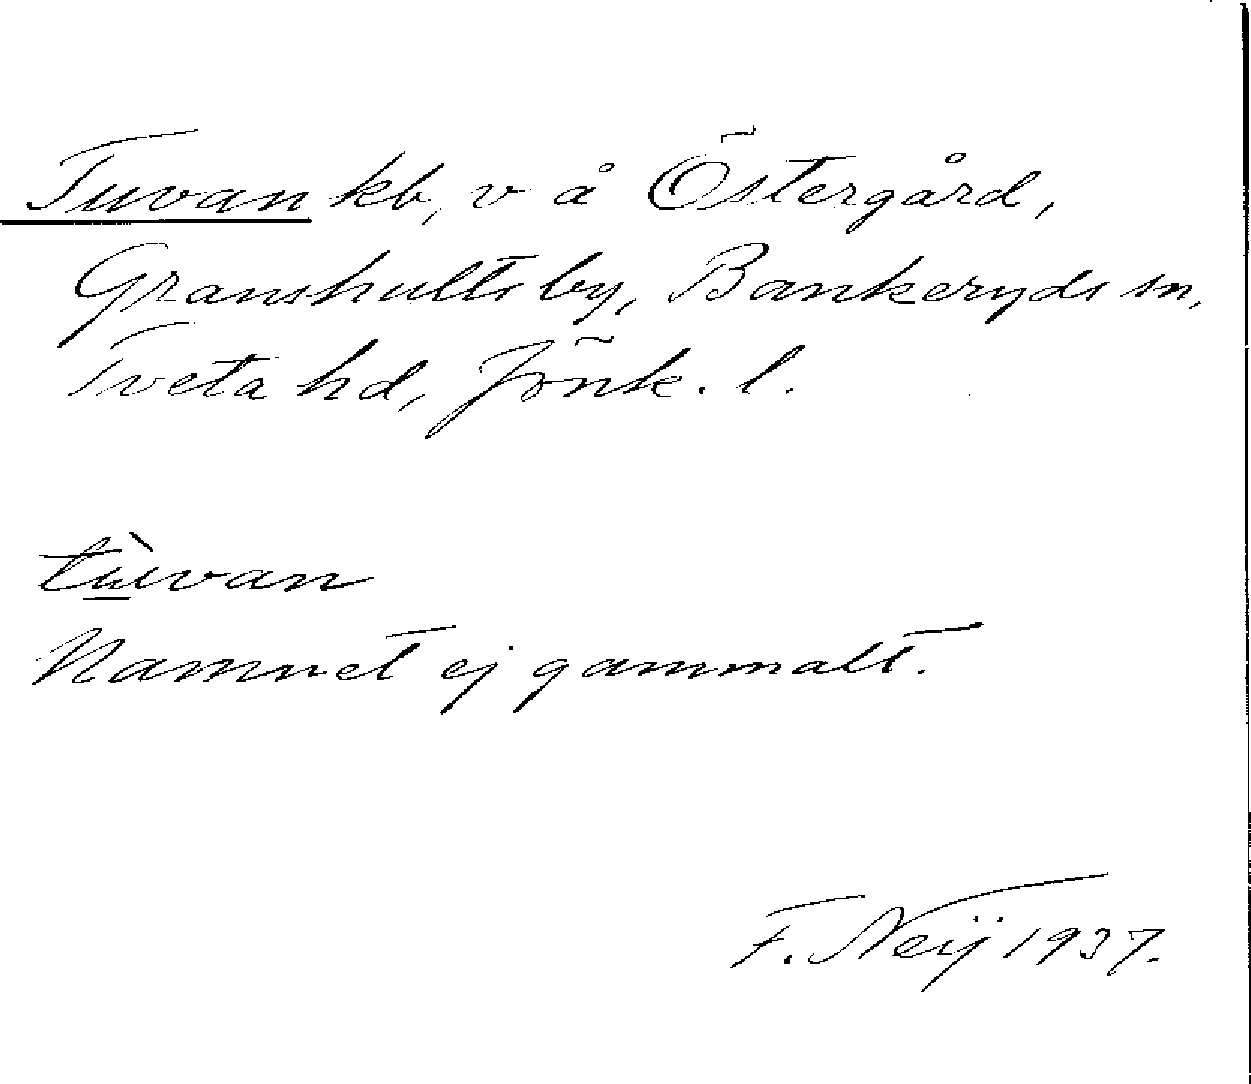 Tuvan kb, v å Östergård,
Granshults by, Bankeryds sn,
Tveta hd, Jönk. l.
tùvan
Namnet ej gammalt.
F. Neij 1937.